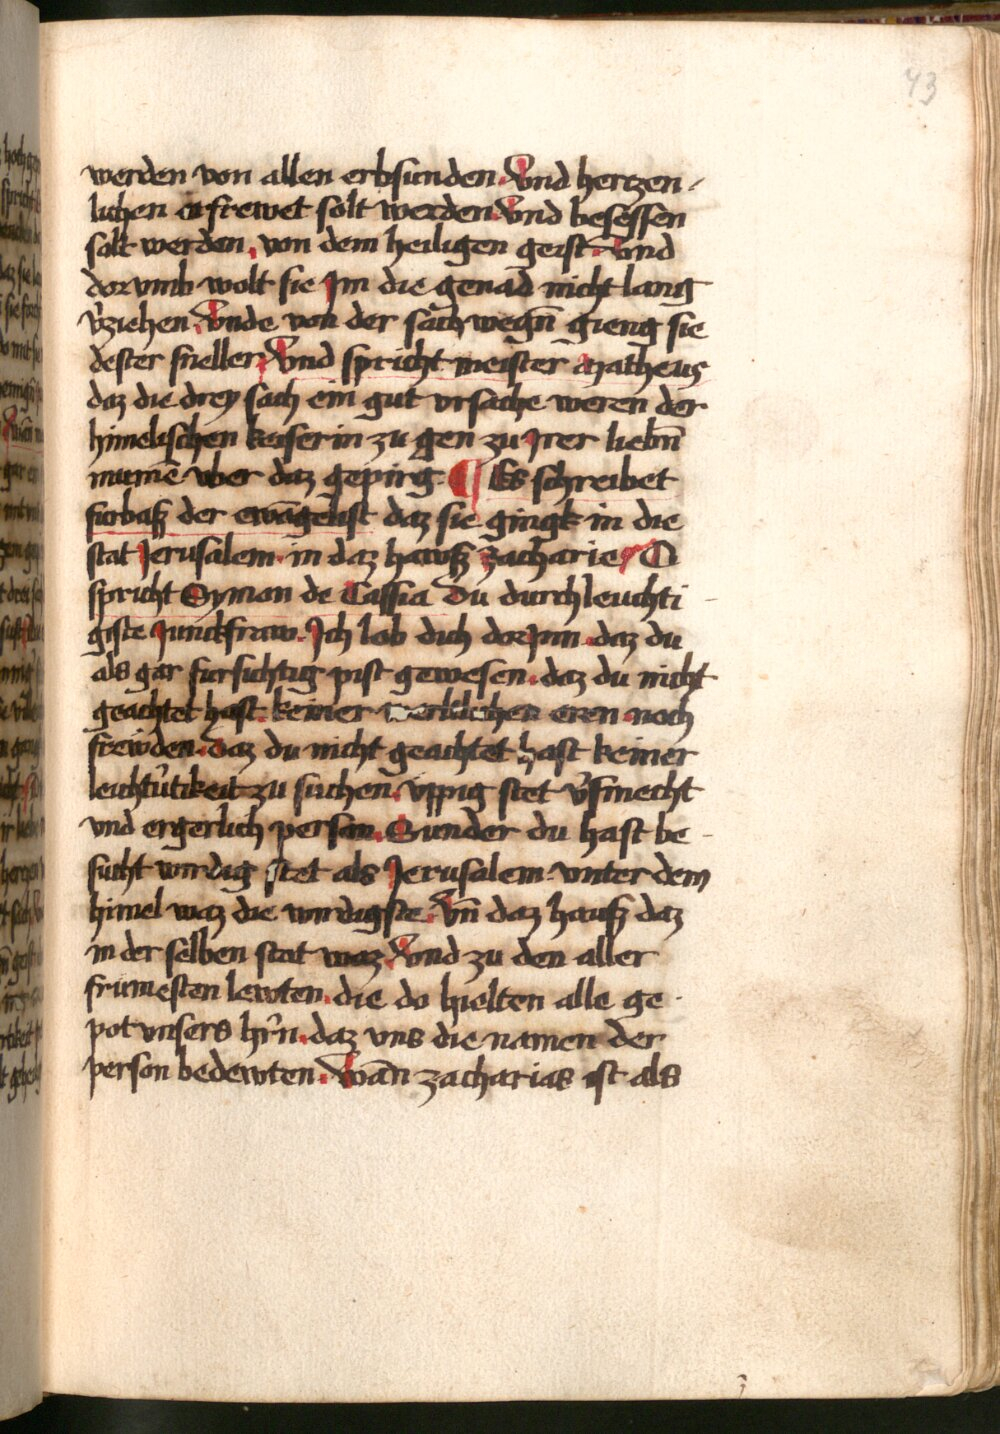 43
werden von allen erbsunden. Vnd hertzen-
lichen erfrewet solt werden. Vnd besessen
solt werden, von dem heiligen geist. Vnd
dor vmb wolt sie Jm die genad nicht lang
v̉ziehen. Vnde von der sach wegn̄ gieng sie
dester sneller. Vnd spricht meister Matheus
daz die drey sach ein gut vrsache weren der
himelischen keiserin zu gen zu Jrer liebn̄
mumē vber daz gepirg. ¶ Es schreibet
furbaß der ewāgelist daz sie gingk in die
stat Jerusalem. in daz hawß zacharie. O
spricht Symon de Cassia Du durchleuchti-
giste Junckfraw. Jch lob dich dorJnn. daz du
als gar fursichtig pist gewesen. daz du nicht
geachtet hast. keiner werltlichen eren. noch
frewden. daz du nicht geachtet hast keiner
leichtv̉tikeit zu suchen. vppig stet v̉smecht
vnd ergerlich person. Sunder du hast be-
sucht wirdig stet als Jerusalem. vnter dem
himel waz die wirdigste. Vn̄ daz hauß daz
in der selben stat waz. Vnd zu den aller
frumesten lewten. die do hielten alle ge-
pot vnsers hr̉n. daz vns die namen der
person bedewten. Wān zacharias ist als